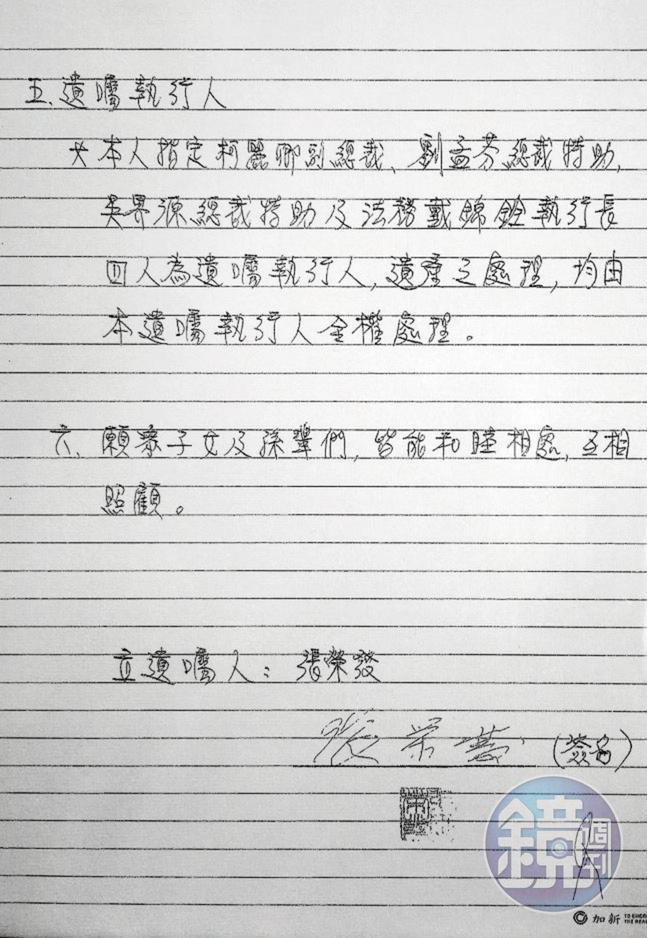 五、遺囑執行人
本人指定柯麗卿副總裁、劉孟芬總裁特助、
吳界源總裁特助及法務戴錦銓執行長
四人為遺囑執行人,遺產之處理,均由
本遺囑執行人全權處理。
六、願眾子女及孫輩們,皆能和睦相處,互相
照顧。
立遺囑人:張榮發
張榮發(簽名)
鏡週刊
加新